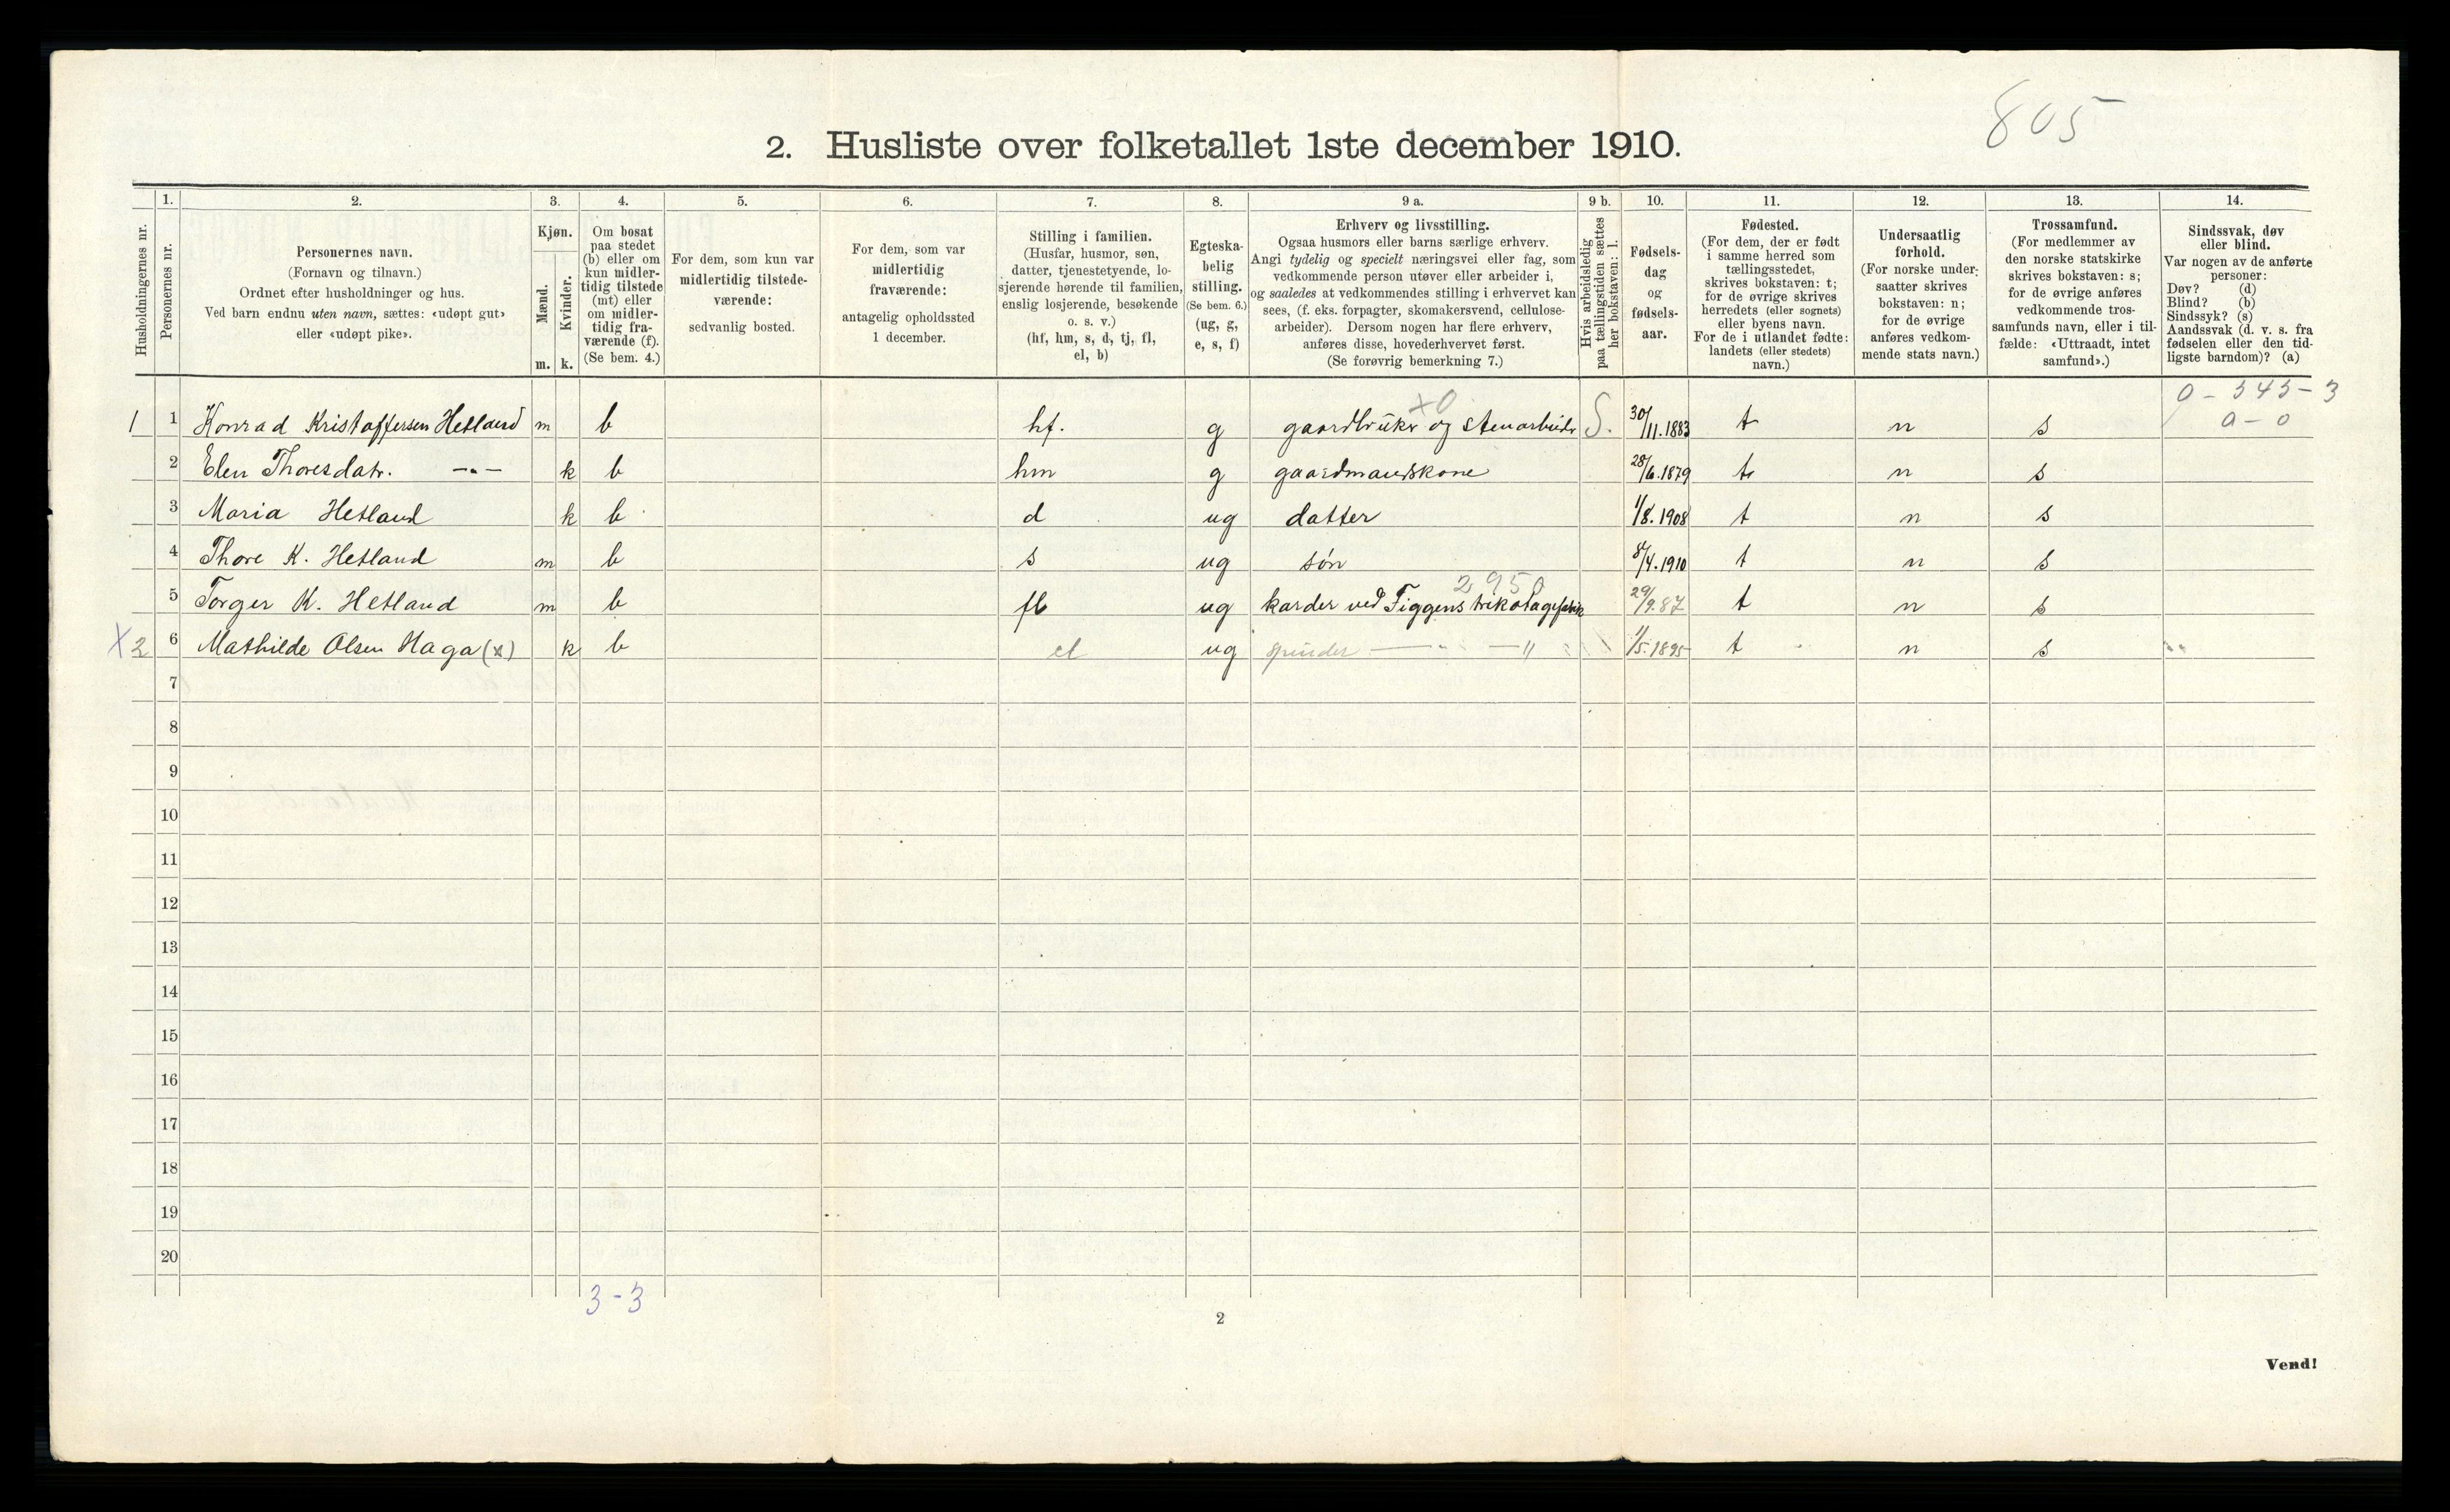 805
2. Husliste over folketallet 1ste december 1910.
Husholdningernes nr.
1.
Personernes nr.
2.
Personernes navn.
(Fornavn og tilnavn.)
Ordnet efter husholdninger og hus.
Ved barn endnu uten navn, sættes: «udøpt gut»
eller «udøpt pike».
3.
Kjøn.
Mænd.
Kvinder.
m. k.
4.
Om bosat
paa stedet
(b) eller om
kun midler-
tidig tilstede
(mt) eller
om midler-
tidig fra-
værende (f).
(Se bem. 4.)
5.
For dem, som kun var
midlertidig tilstede-
værende:
sedvanlig bosted.
6.
For dem, som var
midlertidig
fraværende:
antagelig opholdssted
1 december.
7.
Stilling i familien.
(Husfar, husmor, søn,
datter, tjenestetyende, lo-
sjerende hørende til familien,
enslig losjerende, besøkende
o. s. v.)
(hf, hm, s, d, tj, fl,
el, b)
8.
Egteska-
belig
stilling.
(Se bem. 6.)
(ug, g,
e, s, f)
9 a.
Erhverv og livsstilling.
Ogsaa husmors eller barns særlige erhverv.
Angi tydelig og specielt næringsvei eller fag, som
vedkommende person utøver eller arbeider i,
og saaledes at vedkommendes stilling i erhvervet kan
sees, (f. eks. forpagter, skomakersvend, cellulose-
arbeider). Dersom nogen har flere erhverv,
anføres disse, hovederhvervet først.
(Se forøvrig bemerkning 7.)
9 b.
Hvis arbeidsledig
paa tællingstiden sættes
her bokstaven: l.
10.
Fødsels-
dag
og
fødsels-
aar.
11.
Fødested.
(For dem, der er født
i samme herred som
tællingsstedet,
skrives bokstaven: t;
for de øvrige skrives
herredets (eller sognets)
eller byens navn.
For de i utlandet fødte:
landets (eller stedets)
navn.)
12.
Undersaatlig
forhold.
(For norske under-
saatter skrives
bokstaven: n;
for de øvrige
anføres vedkom-
mende stats navn.)
13.
Trossamfund.
(For medlemmer av
den norske statskirke
skrives bokstaven: s;
for de øvrige anføres
vedkommende tros-
samfunds navn, eller i til-
fælde: «Uttraadt, intet
samfund».)
14.
Sindssvak, døv
eller blind.
Var nogen av de anførte
personer:
Døv? (d)
Blind? (b)
Sindssyk? (s)
Aandssvak (d. v. s. fra
fødselen eller den tid-
ligste barndom)? (a)
0 - 343 - 3
0 - 0
x0
1 1 Konrad Kristoffersen Hetland m b hf. g gaardbruker og stenarbeider S. 30/11.1883 t n s
2 Elen Thoresdatr. -"- k b hm g gaardmandskone 28/6.1879 t n s
3 Maria Hetland k b d ug datter 1/8.1908 t n s
4 Thore K. Hetland m b s ug søn 8/4.1910 t n s
2950
5 Torger K. Hetland m b fl ug karder ved Figgens trikotagefabrik 29/9.87 t n s
X 2 6 Mathilde Olsen Haga (x) k b el ug spinder -"- -"- 1/5.1895 t n s
7
8
9
10
11
12
13
14
15
16
17
18
19
20
3-3
2
Vend!